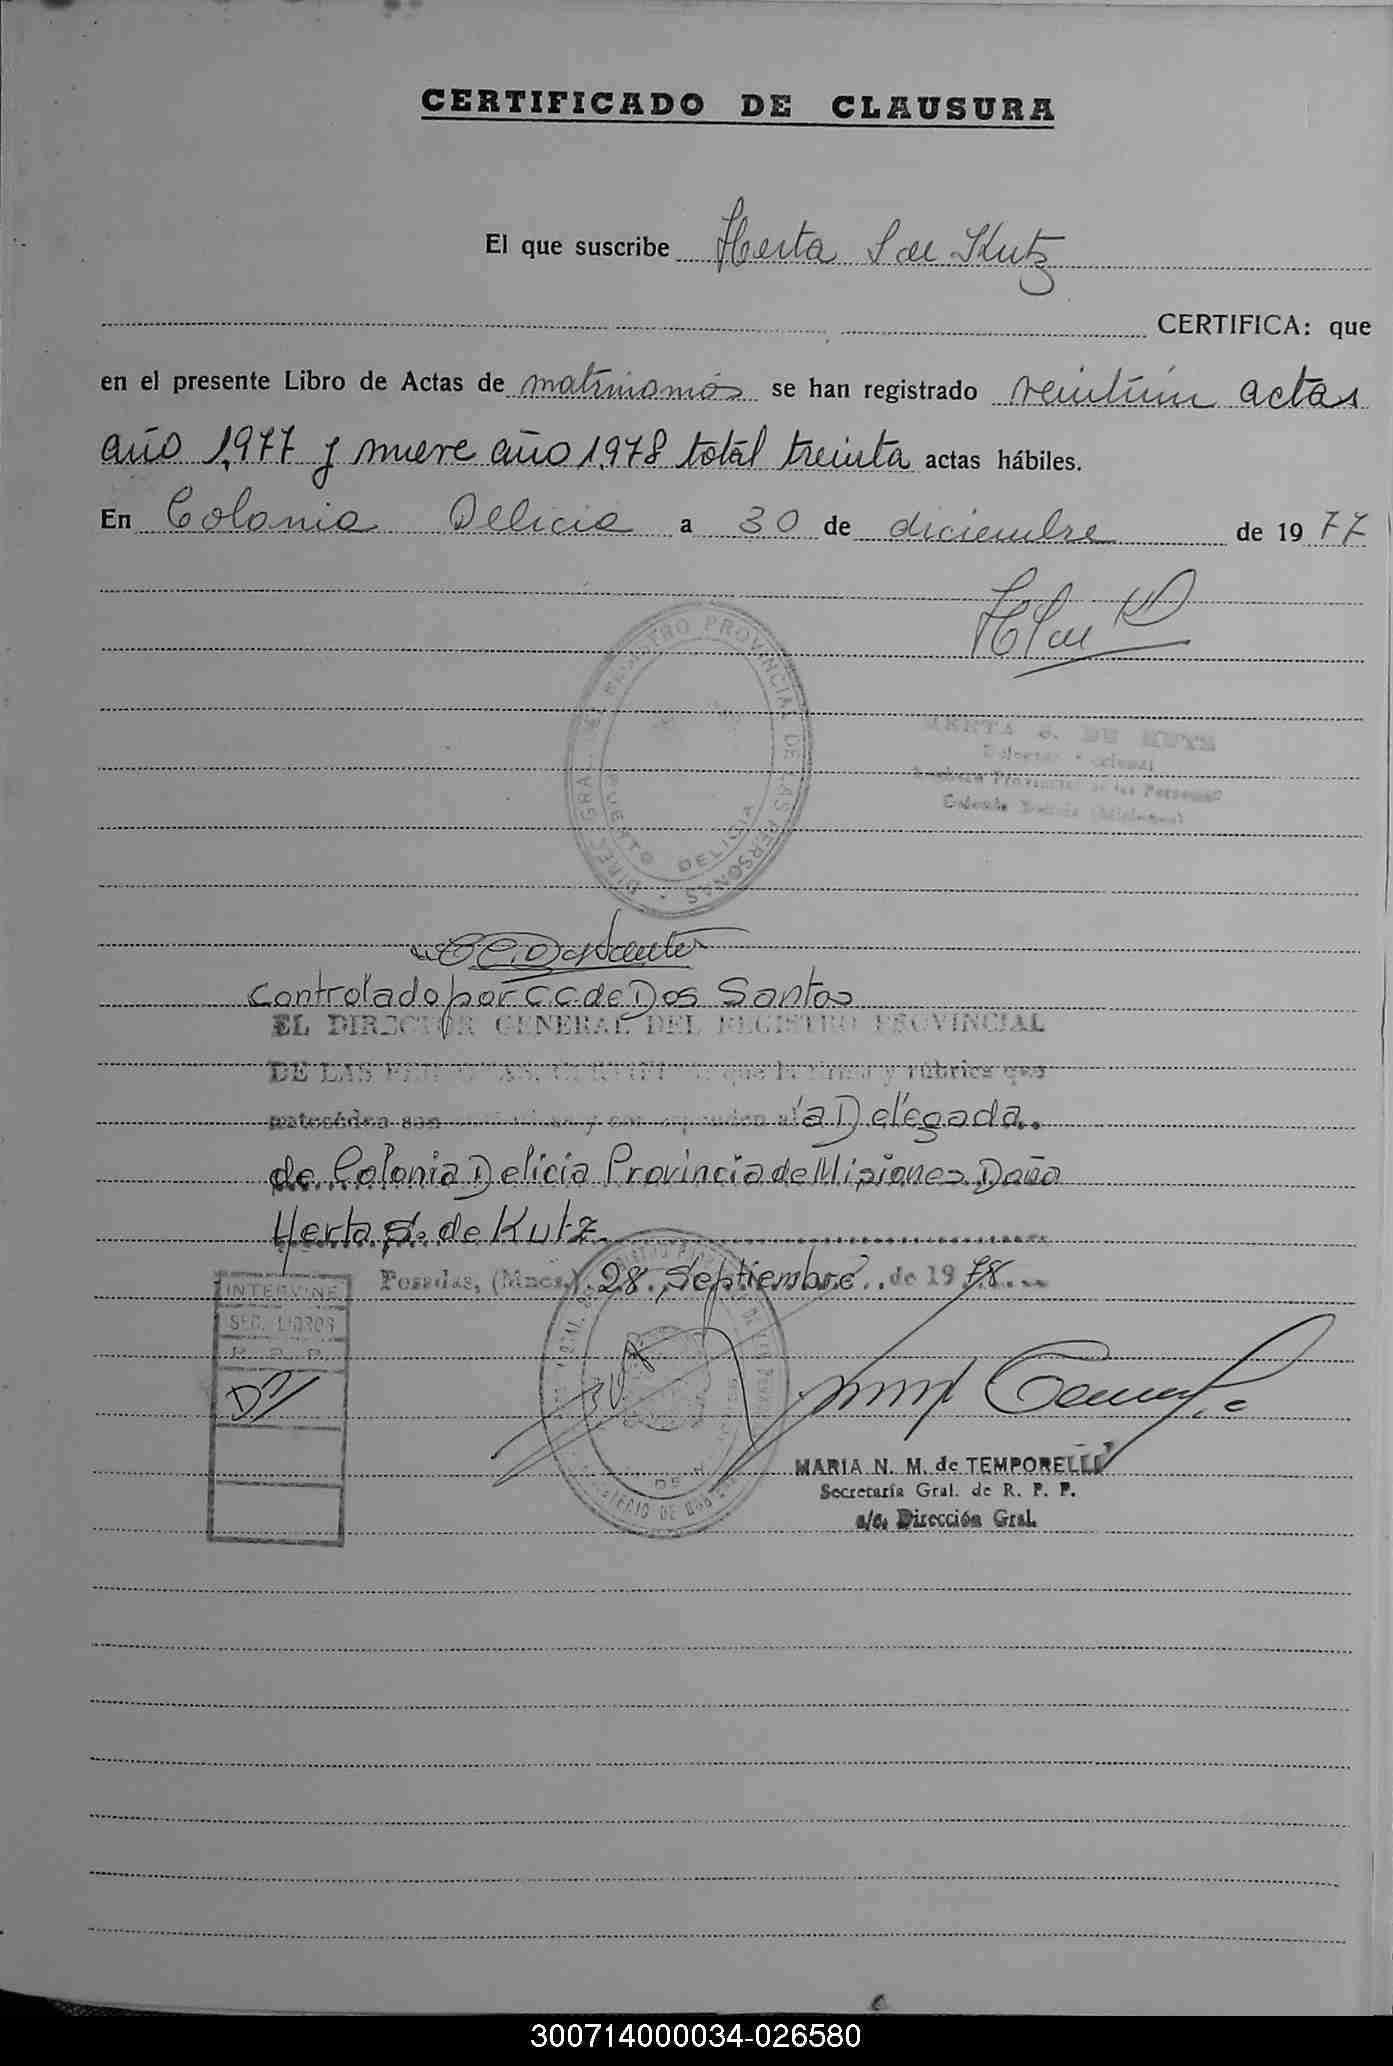 CERTIFICADO DE CLAUSURA
El que suscribe Herta S de Kutz
CERTIFICA: que
en el presente Libro de Actas de matrimonios se han registrado veintiún actas
año 1977 y nueve año 1978 total treinta actas hábiles.
En Colonia Delicia a 30 de diciembre de 1977
DIREC. GRAL. DEL REGISTRO PROVINCIAL DE LAS PERSONAS
PUERTO DELICIA
HERTA S. DE KUTZ
Provincial de las Personas
Colonia Delicia (Misiones)
Controlado por C C de Dos Santos
EL DIRECTOR GENERAL DEL REGISTRO PROVINCIAL
DE LAS PERSONAS, CERTIFICA que la firma y rúbrica que
antecéden son y corresponden a la Delegada
de Colonia Delicia Provincia de Misiones Doña
Herta S. de Kutz
Posadas, (Mnes.) 28 Septiembre de 1978
INTERVINE
SEC. LIBROS
R. P. P.
MARIA N. M. de TEMPORELLI
Secretaría Gral. de R. P. P.
a/c. Dirección Gral.
300714000034-026580